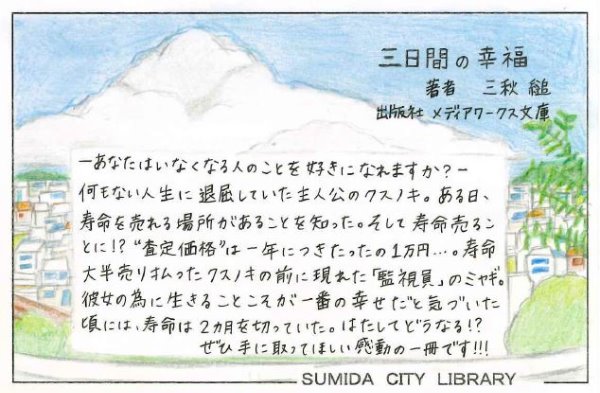 三日間の幸福
著者 三秋 縋
出版社 メディアワークス文庫
－あなたはいなくなる人のことを好きになれますか?－
何もない人生に退屈していた主人公のクスノキ。ある日、
寿命を売れる場所があることを知った。そして寿命売るこ
とに!?“査定価格”は一年につきたったの1万円…。寿命
大半売り払ったクスノキの前に現れた「監視員」のミヤギ。
彼女の為に生きることこそが一番の幸せだと気づいた
頃には、寿命は2カ月を切っていた。はたしてどうなる!?
ぜひ手に取ってほしい感動の一冊です!!!
SUMIDA CITY LIBRARY